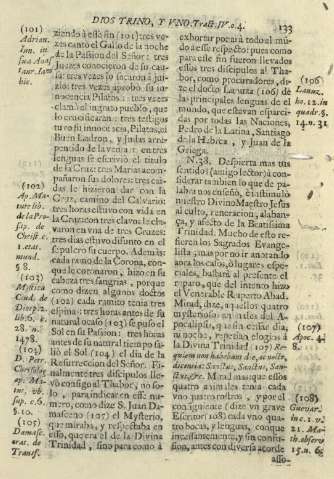 DIOS TRINO, Y VNO. Trat. IV. 133
(101)
Adrian.
ziendo à este sin (101) tres vo-
zes cantò el Gallo de la noche
de la Passion del Señor: tres
Juezes conocieron de su cau-
sa: tres vezes
zio: tres vezes aprobò su in-
nocencia Pilatos: tres vezes
pueblo, que
lo crucificaran: tres testigos
tuvo su innocencia, Pilatos, el
Buen Ladron, y Judas arre-
pentido de la venta: en tres
lenguas se escriviò el titulo
de la Cruz: tres Marias acom-
pañaron sus dolores: tres cai-
das le hizieron dar con la
Cruz, camino del Calvario:
tres horas estuvo con vida en
la Cruz con tres clavos: le cla-
varon en vna de tres Cruzes:
tres dias estuvo difunto en el
sepulcro su cuerpo. Demàs:
cada ramo de la Corona, con
que le coronaron, hizo en su
cabeza tres sangrias, porque
como dizen algunos doctos
(102) cada ramito tenia tres
espinas: tres horas antes de su
natural ocaso (103) se puso el
Sol en su Passion: tres horas
antes de su natural tiempo sa-
liò el Sol (104) el dia de la
Resurreccion del Señor. Fi-
nalmente tres discipulos lle-
vò consigo al Thabor, no so-
lo, para indicar en esse nu-
mero, como dize S. Juan Da-
masceno (105) el Mysterio,
que miraba, y respectaba en
esso, que era el de la Divina
Trinidad, sino para como à
(102)
(103)
Mystica
Ciud. de
Dios
lib. 6.
28. n.
1478.
(103)
D. Petr.
cap. 6.
§. 10.
(105)
Damasc.
orat. de
Transf.
exhortar porarà todo el mũ-
do à esse respeto: pues como
para este fin fueron llevados
essos tres discipulos al Tha-
bor, como procuradores, di-
ze el docto Lanuza (106) de
las principales lenguas de el
mundo, que estavan esparci-
das por todas las Naciones,
Pedro de la Latina, Santiago
de la Hebrea, y Juan de la
Griega.
N.38. Despierta mas tus
sentidos (amigo lector) à con-
siderar tambien lo que de pa-
labra nos enseñò, è insinulò
nuestro Divino Maestro Jesus
al culto, veneracion, alaban-
ça, y afecto de la Beatissima
Trinidad. Mucho de esto re-
fieren los Sagrados Evange-
listas, mas por no ir anotando
aora los casos, ò lugares espe-
ciales, bastarà al presente el
reparo, que del intento hizo
el Venerable Ruperto Abad.
Mirad, dize, aquellos quatro
mysteriosos animales del A-
pocalipsis, que sin cessar dia,
ni noche, repetian elogios à
la Divina Trinidad (107) Re-
quiem non habebant die, ac nocte,
dicentia: Sanctus, Sanctus, San-
ctus, &c. Mirad mas: que essos
quatro animales tenia cada
vno quatro rostros, y por el
consiguiente (dize vn grave
Escritor) (108) cada vno qua-
tro bocas, y lenguas, conque
incessantemente, y sin confu-
sion, antes con diversa acorde
asso-
(106)
Lanuz.
ho. 12. in
quadr. §.
14. n. 31
(107)
Apoc. 4.
8.
(108)
Guevar.
in c. 1. v.
21. Ma-
th. observ
15. n. 6.